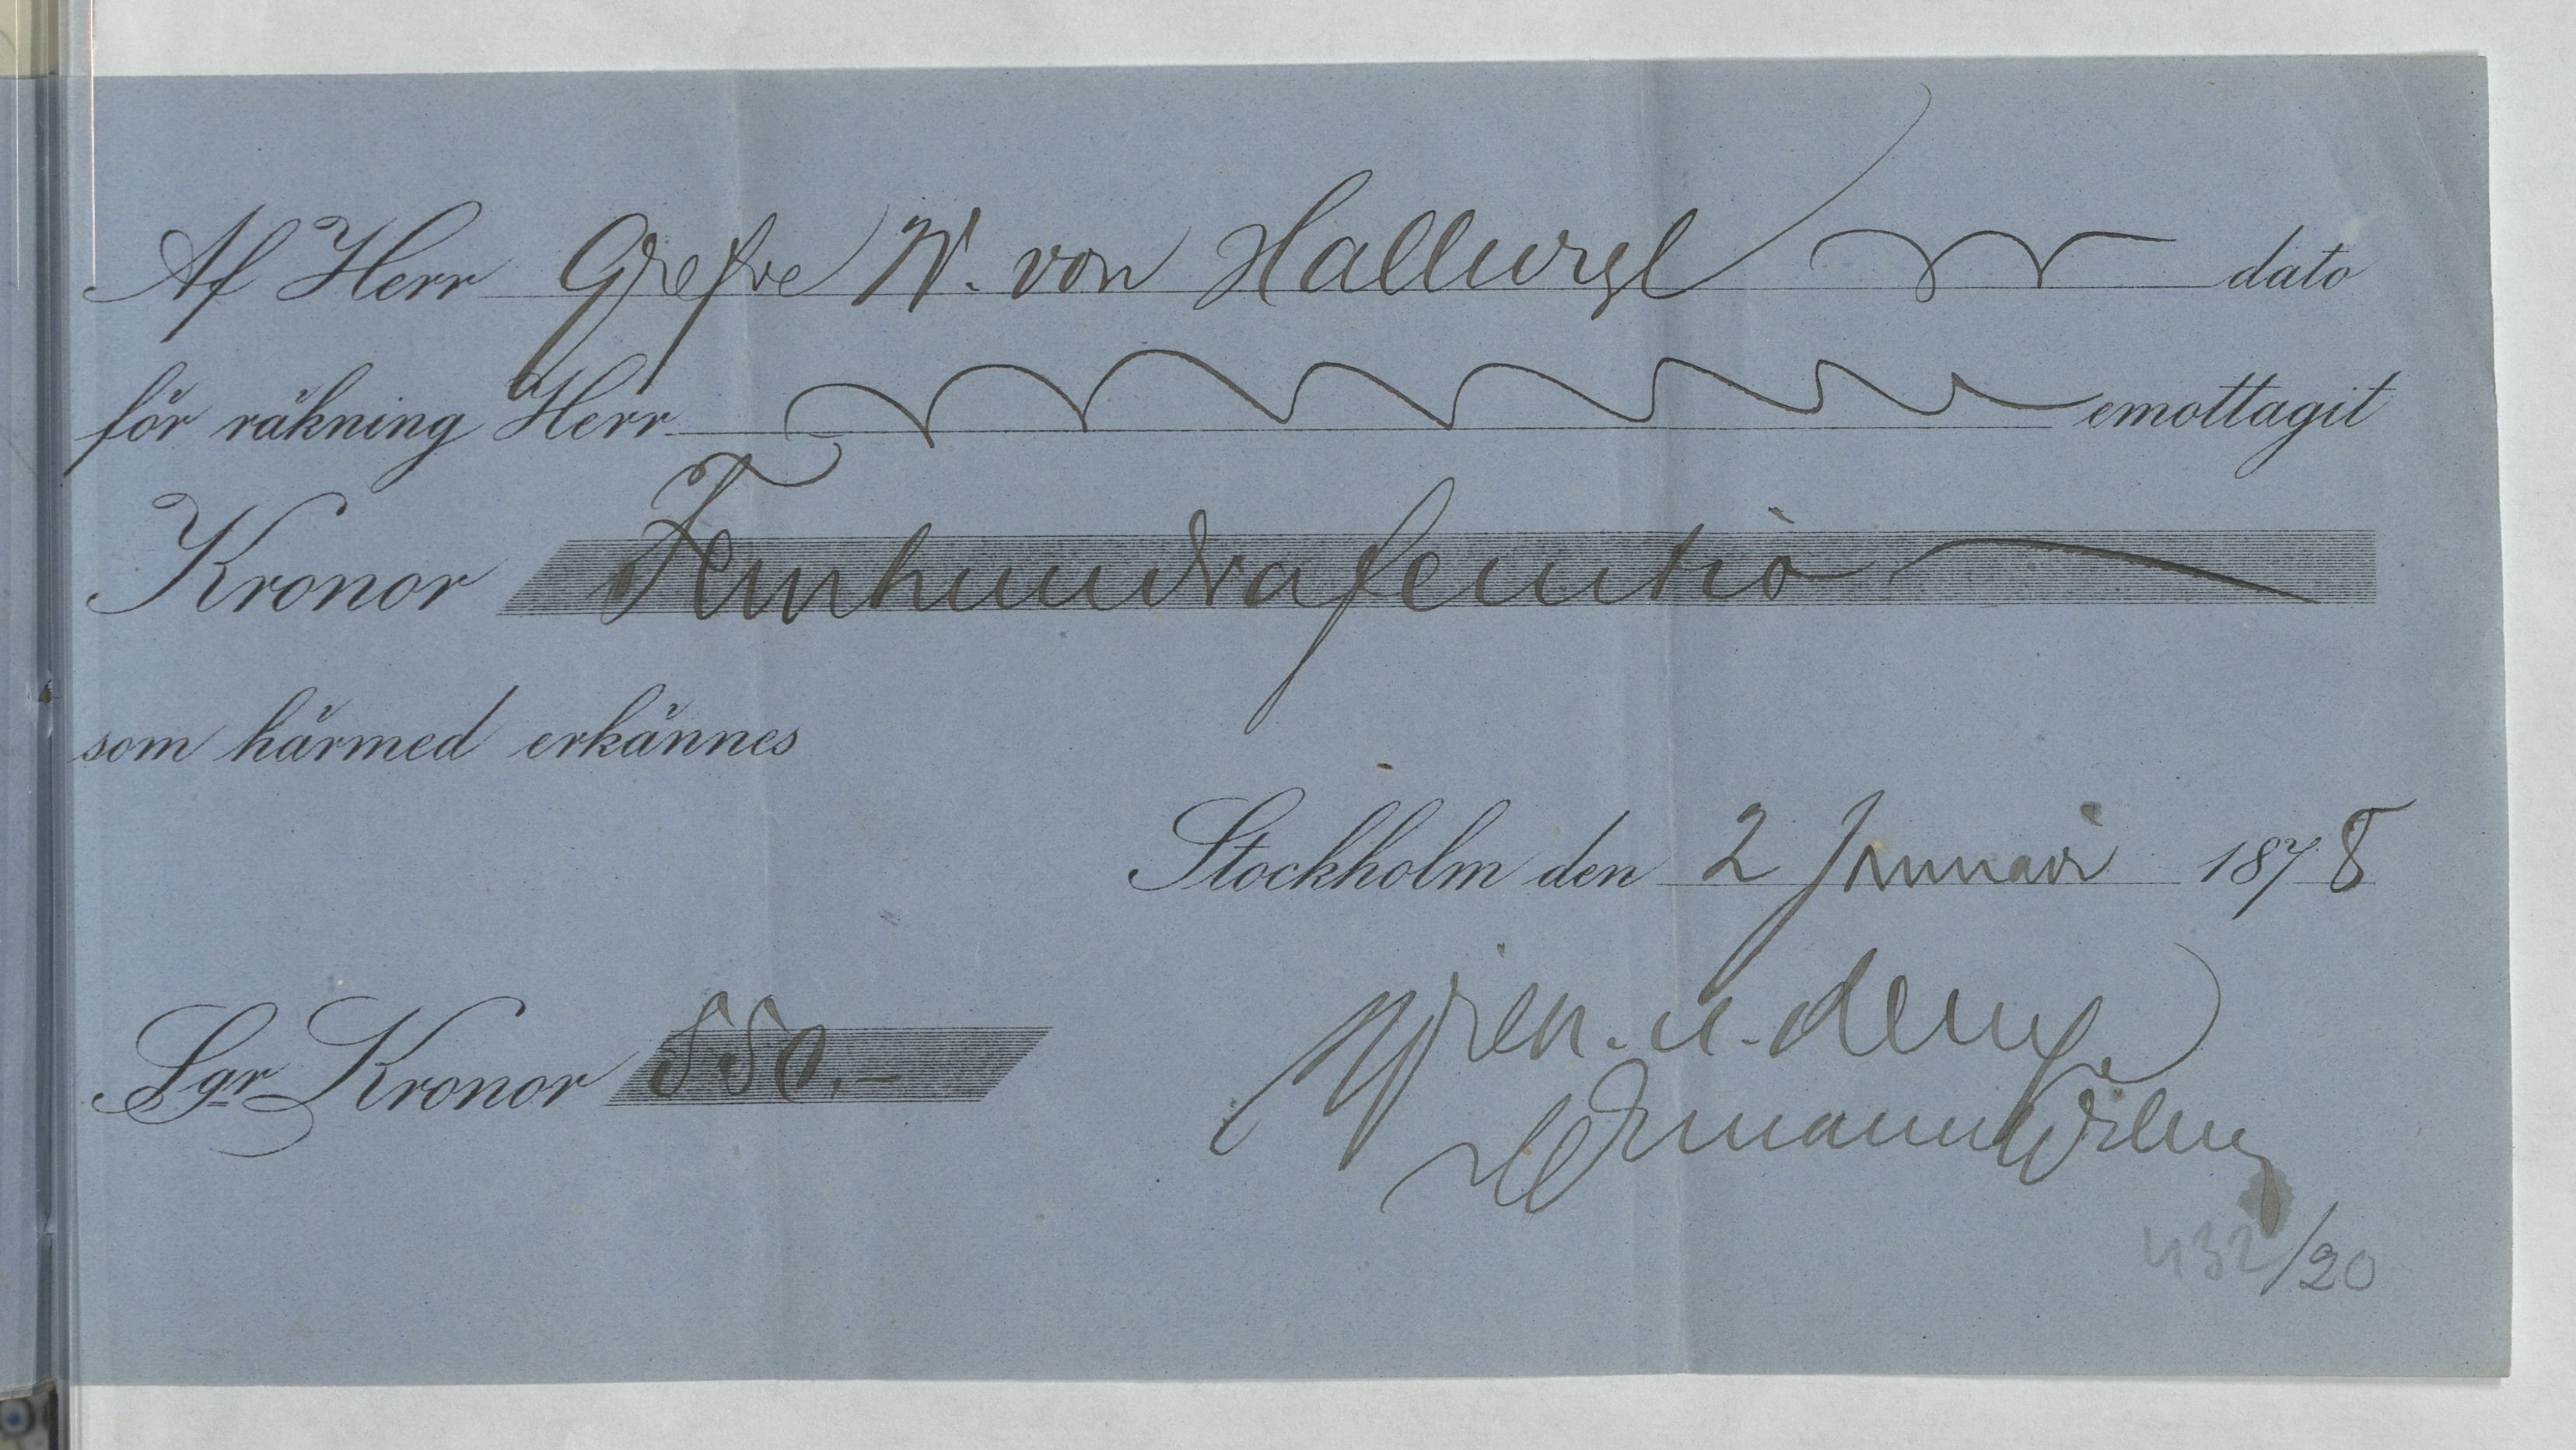 Af Herr Grefve W. von Hallwyl dato
för räkning Herr emottagit
Kronor Femhundrafemtio
som härmed erkännes
Stockholm den 2 Januari 1878
Sgr Kronor 550.-
432/20